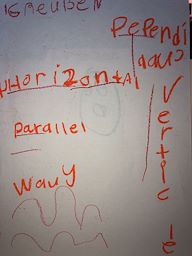 GREUBEN
Pependi
Horizontal
Parallel
Wavy
Vertic
le